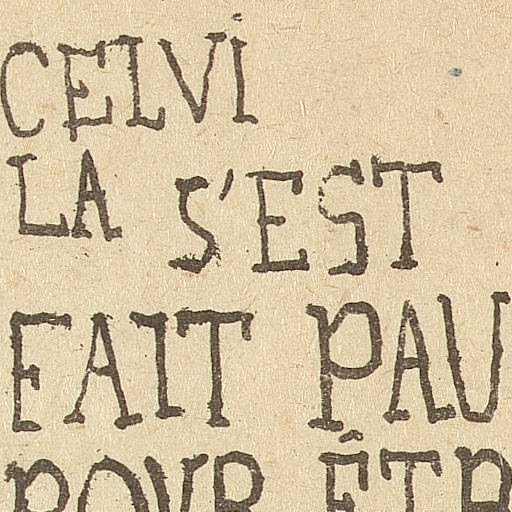 CELVI
LA S'EST
FAIT PAU
POVR ÊTR